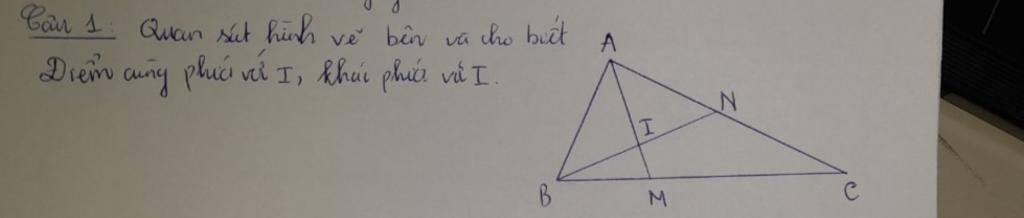 Câu 1: Quan sát hình vẽ bên và cho biết
Điểm cùng phía với I, khác phía với I.
A
N
I
B
M
C